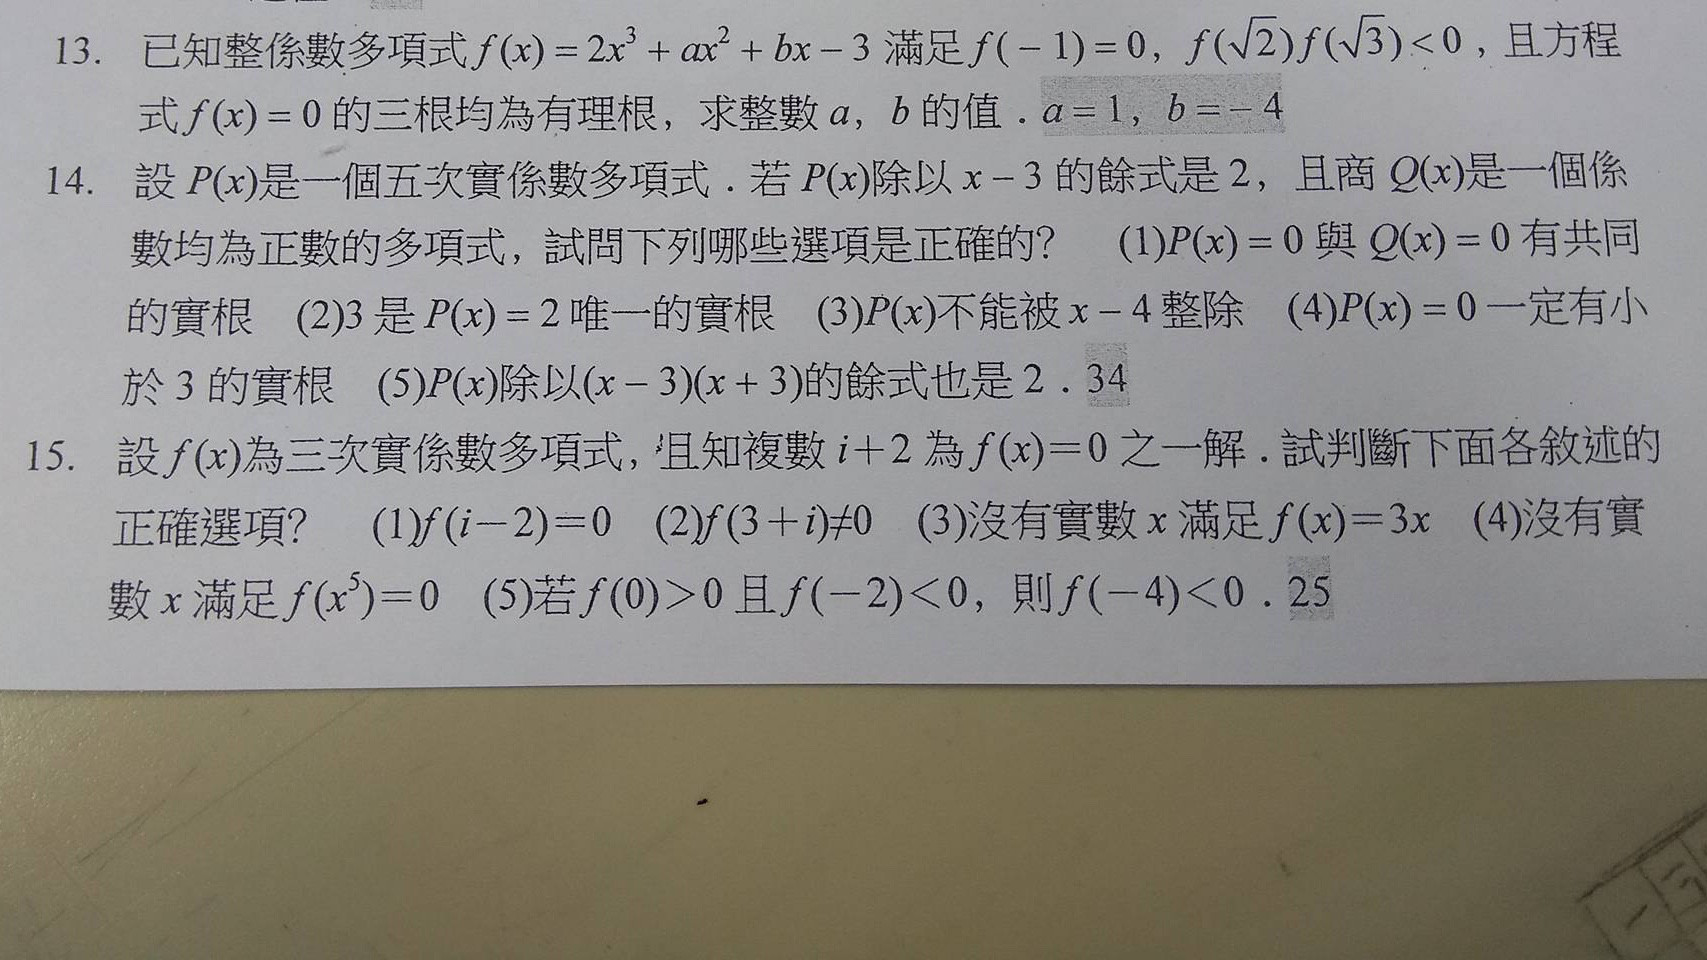 13. 已知整係數多項式 f(x) = 2x³ + ax² + bx − 3 滿足 f(− 1) = 0, f(√2)f(√3) < 0，且方程
式 f(x) = 0 的三根均為有理根, 求整數 a, b 的值．a = 1, b = − 4
14. 設 P(x)是一個五次實係數多項式．若 P(x)除以 x − 3 的餘式是 2, 且商 Q(x)是一個係
數均為正數的多項式, 試問下列哪些選項是正確的? (1)P(x) = 0 與 Q(x) = 0 有共同
的實根 (2)3 是 P(x) = 2 唯一的實根 (3)P(x)不能被 x − 4 整除 (4)P(x) = 0 一定有小
於 3 的實根 (5)P(x)除以(x − 3)(x + 3)的餘式也是 2．34
15. 設 f(x)為三次實係數多項式, 且知複數 i＋2 為 f(x)＝0 之一解．試判斷下面各敘述的
正確選項? (1)f(i－2)＝0 (2)f(3＋i)≠0 (3)沒有實數 x 滿足 f(x)＝3x (4)沒有實
數 x 滿足 f(x⁵)＝0 (5)若 f(0)＞0 且 f(－2)＜0, 則 f(－4)＜0．25